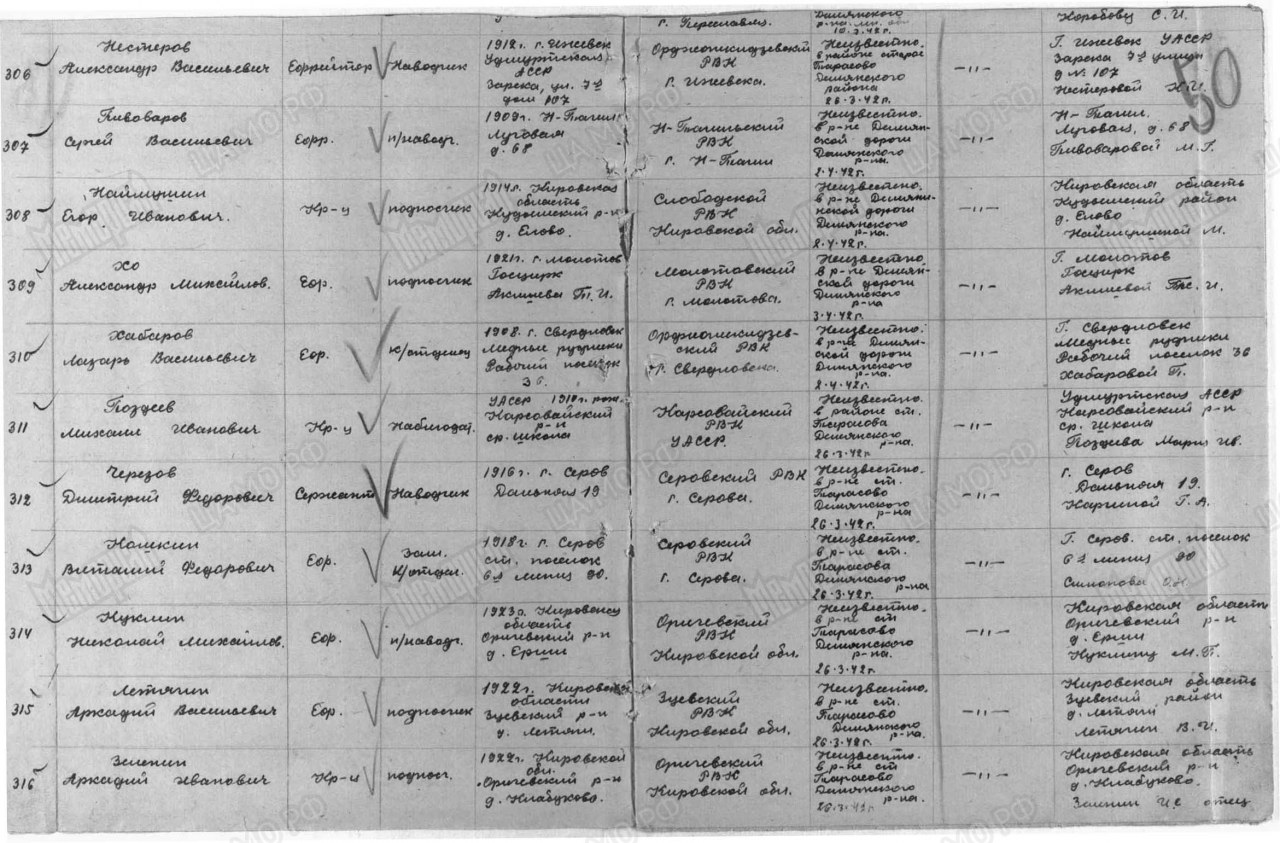 г. Переславль.
Демянского
р-на. Лен. обл.
10.3.42г.
Коробову С. И.
50
306
Нестеров
Александр Васильевич
Ефрейтор
Наводчик
1912г. г. Ижевск
Удмуртская
АССР
Зарека, ул. 7я
дом 107
Орджоникидзевский
РВК
г. Ижевска.
Неизвестно.
в районе
Тарасово
Демянского
района
26.3.42г.
—„—
Г. Ижевск УАССР
Зарека 7я улица
д № 107
Нестеровой Н.И.
307
Пивоваров
Сергей Васильевич
Ефр.
п/наводч.
1909г. Н-Тагил
Луговая
д. 68
Н-Тагильский
РВК
г. Н-Тагил
Неизвестно.
в р-не Демян-
ской дороги
Демянского
р-на.
2.4.42г.
—„—
Н-Тагил.
Луговая, д. 68
Пивоваровой М.Г.
308
Наймушин
Егор Иванович.
Кр-ц
подносчик
1914г. Кировская
область
р-н
д. Елово.
Слободской
РВК
Кировской обл.
Неизвестно.
в р-не Демян-
нской дороги
Демянского
р-на.
2.4.42г.
—„—
Кировская область
район
д. Елово
Наймушиной М.
309
Хо
Александр Михайлов.
Ефр.
подносчик
1921г. г. Молотов
Госцирк
Акишева Т. И.
Молотовский
РВК
г. Молотова.
Неизвестно
в р-не Демян-
ской дороги
Демянского
р-на
3.4.42г.
—„—
Г. Молотов
Госцирк
Акишевой Т. И.
310
Хабаров
Лазарь Васильевич
Ефр.
к/отделен
1908. г. Свердловск
Медные рудники
Рабочий поселок
36.
Орджоникидзев-
ский РВК
г. Свердловска.
Неизвестно.
в р-не Демян-
ской дороги
Демянского
р-на.
2.4.42г.
—„—
Г. Свердловск
Медные рудники
Рабочий поселок 36
Хабаровой П.
311
Поздеев
Михаил Иванович
Кр-ц
Наблюдат.
УАССР 1910г. рож.
Карсовайский
р-н
ср. школа
Карсовайский
РВК
УАССР.
Неизвестно.
в районе ст.
Тарасова
Демянского
р-на.
26.3.42г
—„—
Удмуртская АССР
Карсовайский р-н
ср. школа
Поздеева Мария Ив.
312
Черезов
Дмитрий Федорович
Сержант
Наводчик
1916г. г. Серов
Дальняя 19
Серовский РВК
г. Серова.
Неизвестно.
в р-не ст.
Тарасово
Демянского
р-на
26.3.42г.
—„—
г. Серов
Дальняя 19.
Г. А.
313
Виталий Федорович
Ефр.
Зам.
К/отдел.
1918г. г. Серов
ст. поселок
6я линия 90.
Серовский
РВК
г. Серова.
Неизвестно.
в р-не ст.
Тарасова
Демянского
р-на
26.3.42г.
—„—
Г. Серов. ст. поселок
6я линия 90
314
Куклин
Николай Михайлов.
Ефр.
п/наводч.
1923г. Кировская
область
Оричевский р-н
д. Ершии
Оричевский
РВК
Кировской обл.
Неизвестно.
в р-не ст
Тарасово
Демянского
р-на.
26.3.42г.
—„—
Кировская область
Оричевский р-н
д. Ершии
Куклину М. П.
315
Летягин
Аркадий Васильевич
Ефр.
подносчик
1922г. Кировск
области
Зуевский р-н
д. Летяги.
Зуевский
РВК
Кировской обл.
Неизвестно.
в р-не ст
Тарасово
Демянского
р-на.
26.3.42г.
—„—
Кировская область
Зуевский район
д. Летяги
Летягин В. И.
316
Зеленин
Аркадий Иванович
Кр-ц
поднос.
1922г. Кировской
обл.
Оричевский р-н
д. Клабуково.
Оричевский
РВК
Кировской обл.
Неизвестно.
в р-не ст
Тарасово
Демянского
р-на.
26.3.42г.
—„—
Кировская область
Оричевский р-н
д. Клабуково.
Зеленин И С отец